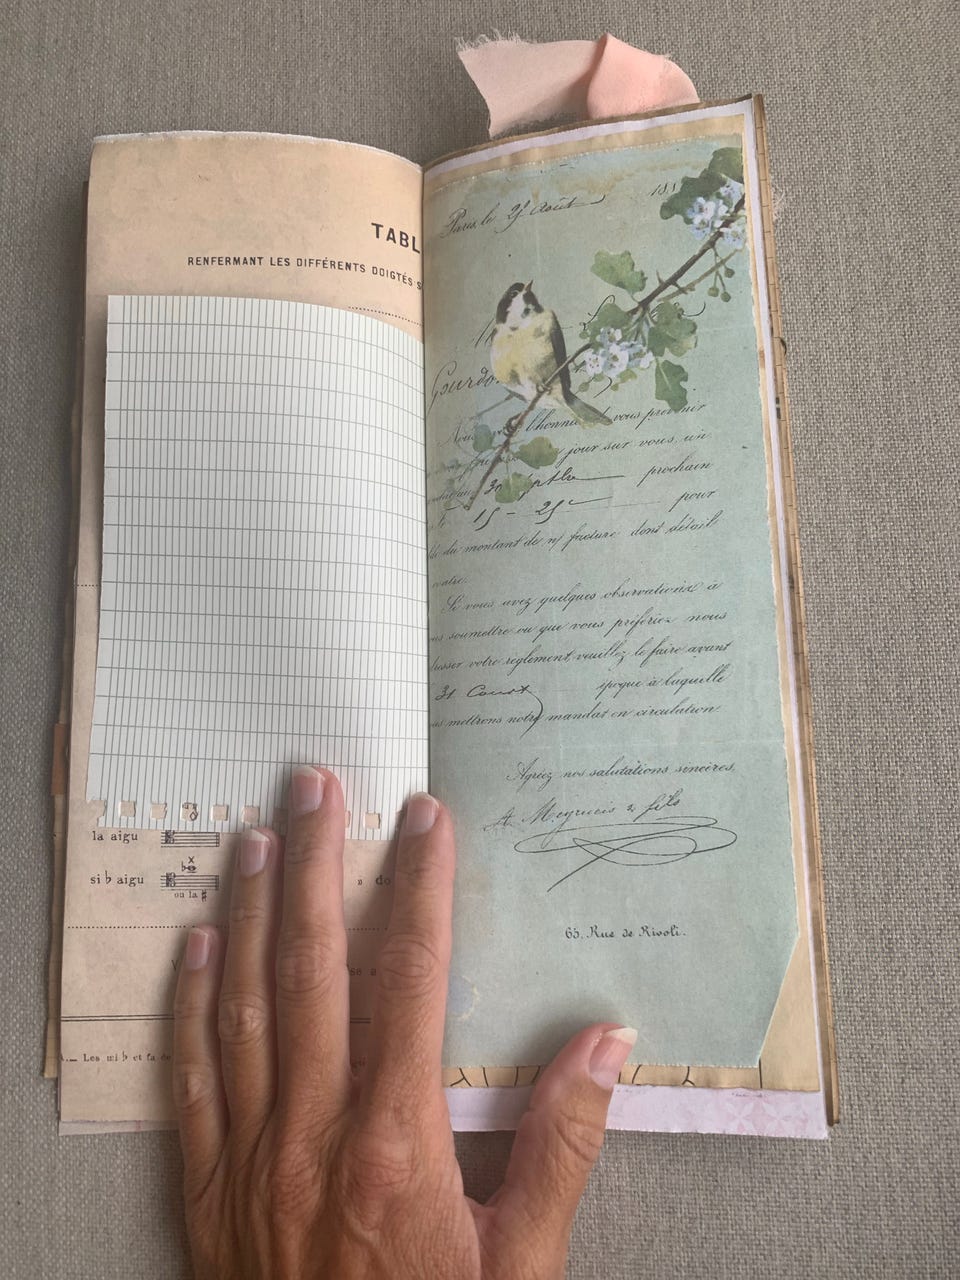 TABL
RENFERMANT LES DIFFÉRENTS DOIGTÉS S
la aigu
si b aigu
ou la #
» do
V
se a
Les mi b et fa
Paris, le 25 Août 188
Gourdo
Nous l'honne vous prévenir
jour sur vous, un
30 prochain
15 - 25c pour
du montant de n/ facture dont détail
contre.
Si vous avez quelques observations à
us soumettre ou que vous préfériez nous
dresser votre règlement veuillez le faire avant
31 Cour époque à laquelle
us mettrons notre mandat en circulation
Agréez nos salutations sincères,
A Meyrueis & fils
65, Rue de Rivoli.